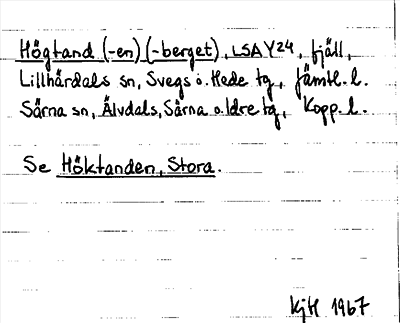 Högtand (-en) (-berget), LSA Y24, fjäll,
Lillhärdals sn, Svegs o. Hede tg, Jämtl. l.
Särna sn, Älvdals, Särna o. Idre tg, Kopp. l.
Se Höktanden, Stora.
KjH 1967